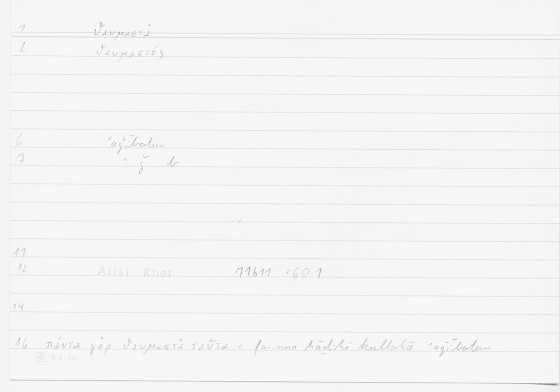 1 θαυμαστὰ
2 θαυμαστός
6 ʿaǧībatun
7 ʿ ǧ b
11
12 Arist Rhet 71b11 =60.1
14
16 πάντα γὰρ θαυμαστὰ ταῦτα = fa-inna hāḏihī kullahā ʿaǧībatun